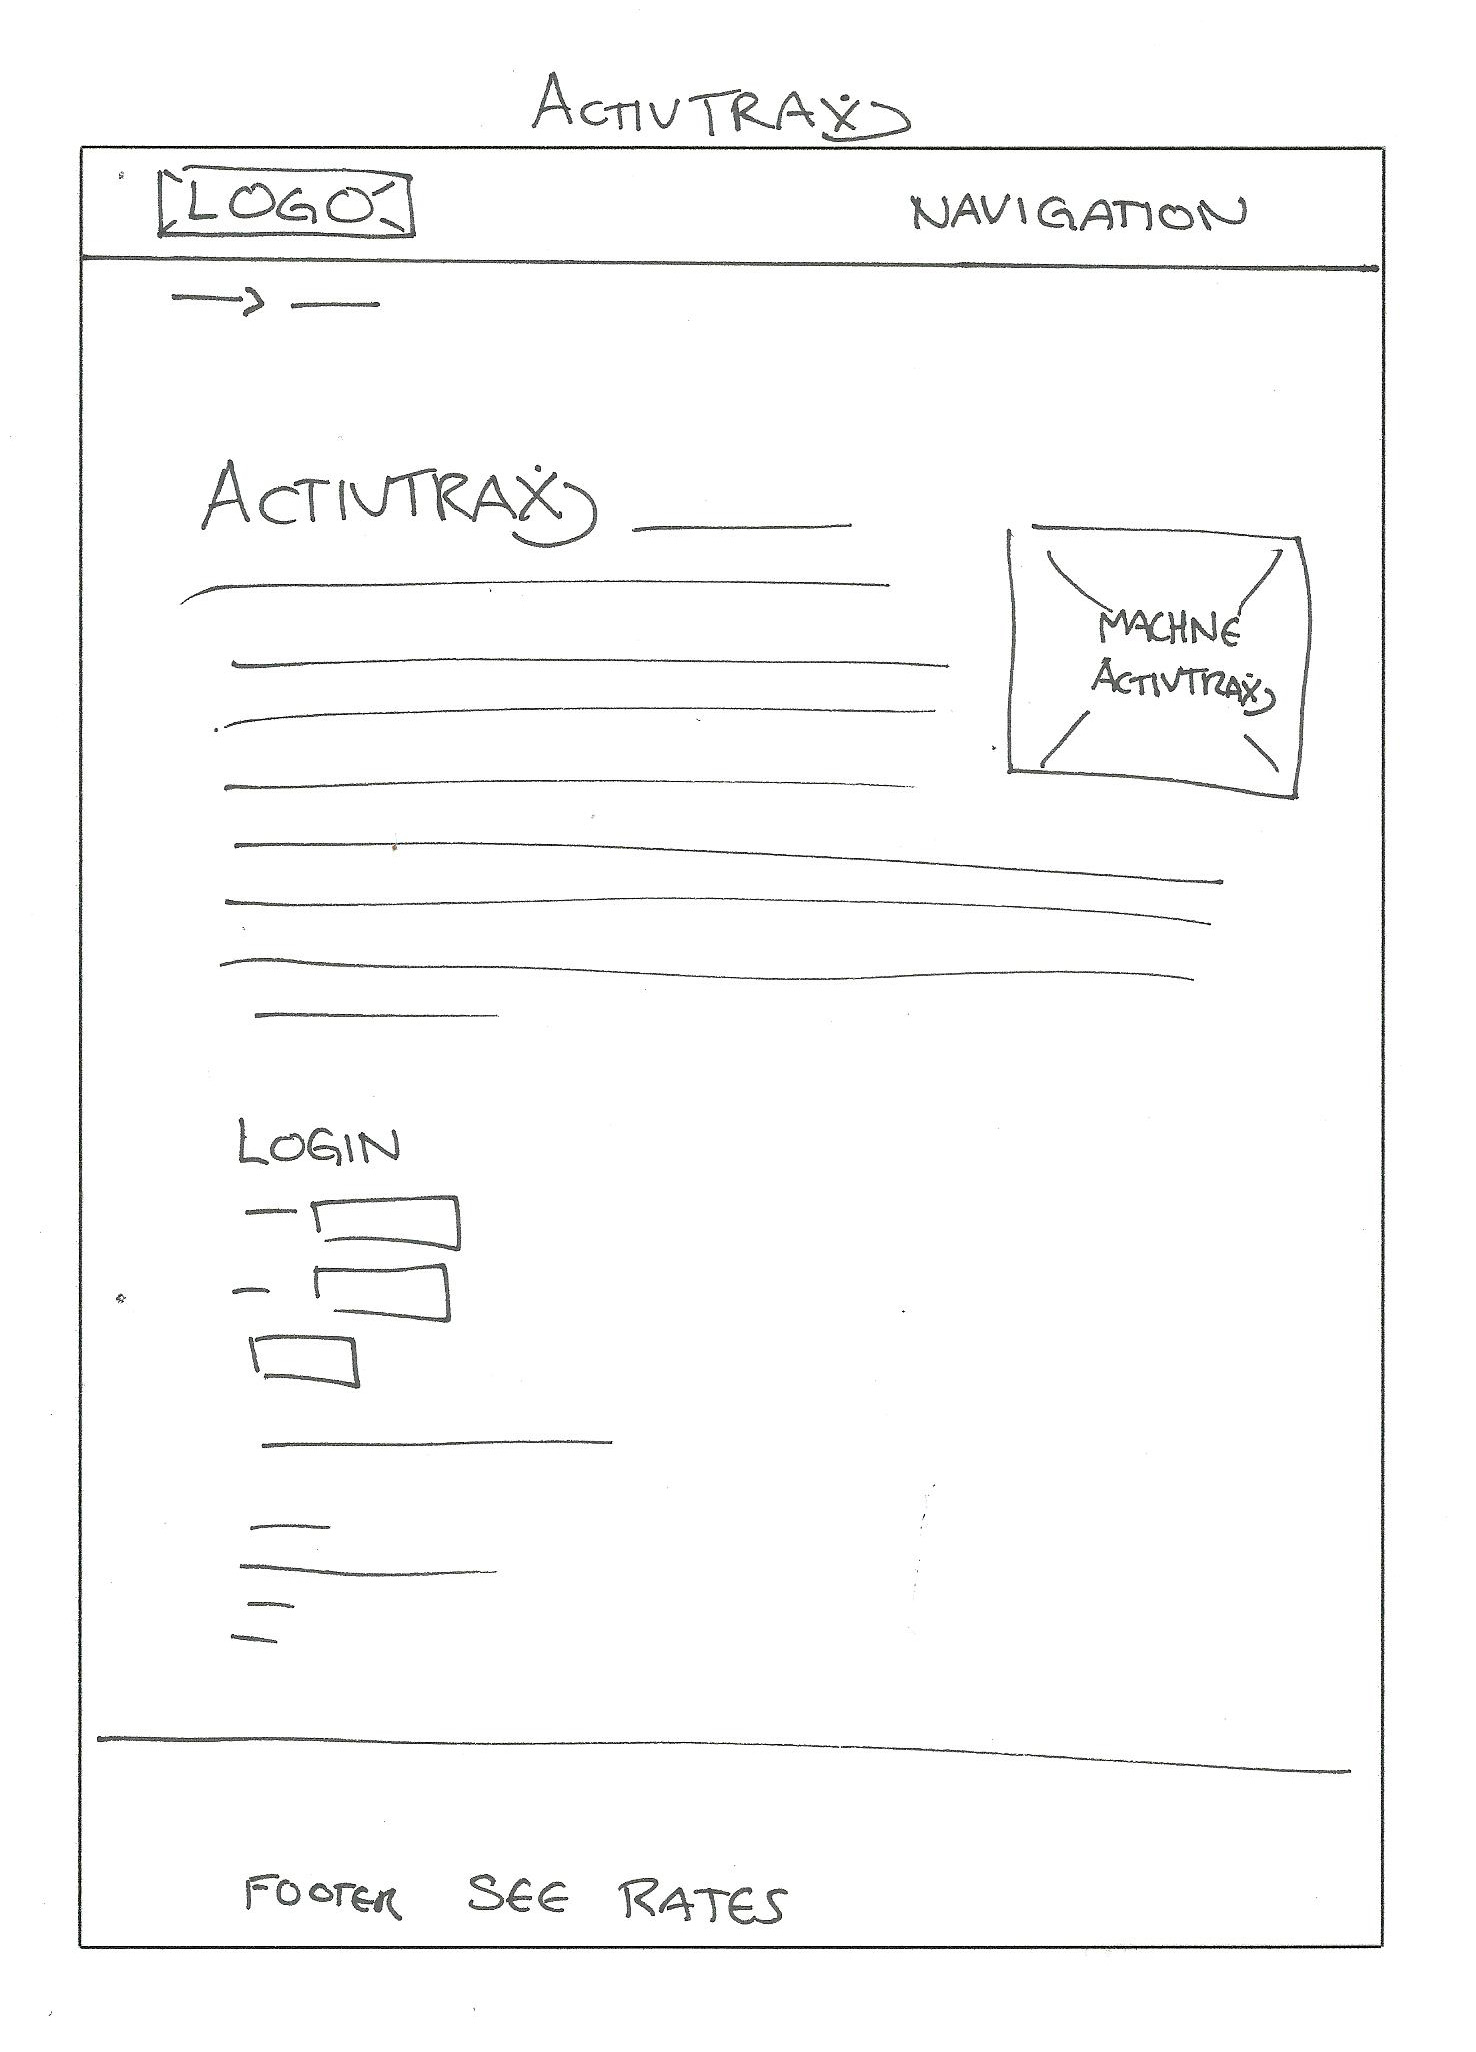 ACTIVTRAX
LOGO
NAVIGATION
ACTIVTRAX
MACHNE
ACTIVTRAX
LOGIN
FOOTER SEE RATES